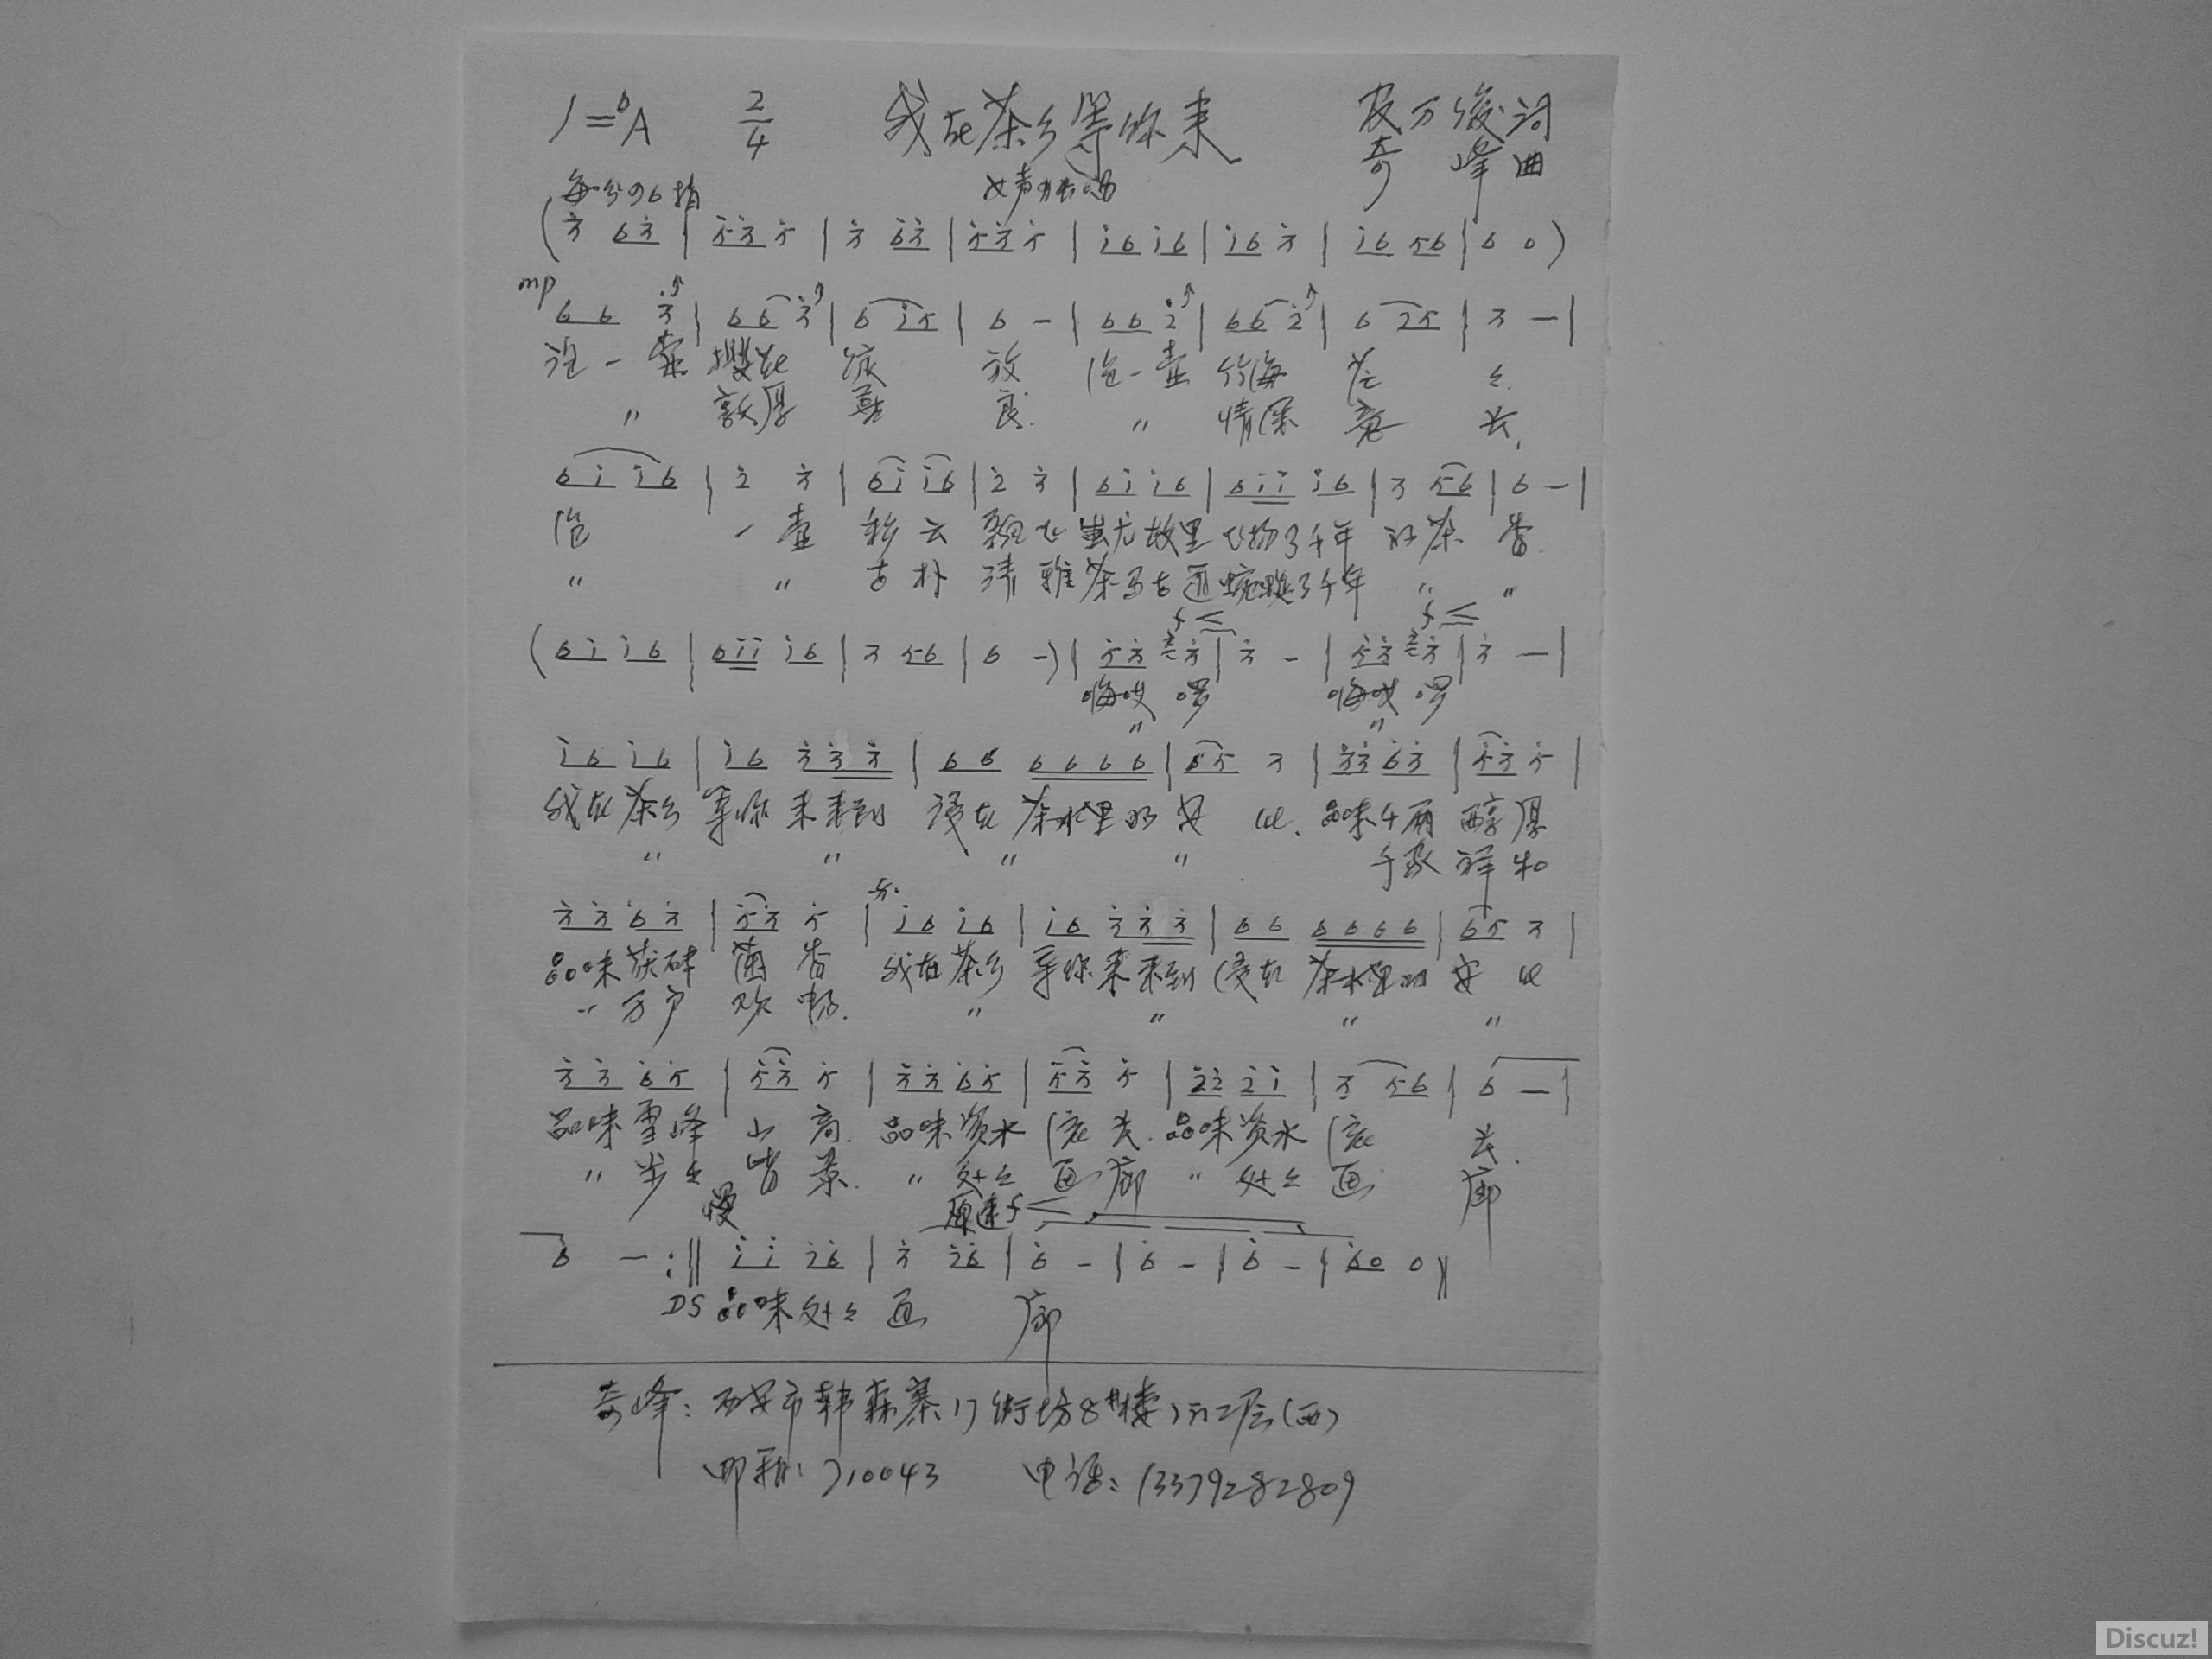 1=♭A 2/4 我在茶乡等你来 万俊词
奇峰曲
每分96拍 女声独唱
(3̇ 6 3̇ | 5̇ 3̇ 5̇ | 3̇ 6 3̇ | 5̇ 3̇ 5̇ | 1̇ 6 1̇ 6 | 1̇ 6 3̇ | 1̇ 6 5 6 | 6 0)
mp 6 6 3̇ | 6 6 3̇ | 6 1̇ 5 | 6 - | 6 6 2̇ | 6 6 2̇ | 6 2 5 | 3 - |
泡一壶樱花绽放 泡一壶竹海茫々
〃 敦厚善良. 〃 情深意长,
6 1̇ 1̇ 6 | 2̇ 3̇ | 6 1̇ 1̇ 6 | 2̇ 3̇ | 6 1̇ 1̇ 6 | 6 1̇ 1̇ 1̇ 6 | 3 5 6 | 6 - |
泡一壶彩云飘飞蚩尤故里飞扬了千年的茶香.
〃 〃 古朴清雅茶马古道蜿蜒了千年 〃 〃
f f
(6 1̇ 1̇ 6 | 6 1̇ 1̇ 1̇ 6 | 3 5 6 | 6 -) | 5̇ 3̇ 3̇ | 3̇ - | 5̇ 3̇ 3̇ | 3̇ - |
嗨哎啰 嗨哎啰
〃 〃
1̇ 6 1̇ 6 | 1̇ 6 3̇ 3̇ 3̇ | 6 6 6 6 6 6 | 6 5 3 | 3̇ 3̇ 6 3̇ | 5̇ 3̇ 5̇ |
我在茶乡等你来来到浸在茶水里的安化. 品味千两醇厚
〃 〃 〃 〃 千家祥和
3̇ 3̇ 6 3̇ | 5̇ 3̇ 5̇ | 1̇ 6 1̇ 6 | 1̇ 6 3̇ 3̇ 3̇ | 6 6 6 6 6 6 | 6 5 3 |
品味茯砖菌香 我在茶乡等你来来到浸在茶水里的安化
〃 万户欢畅. 〃 〃 〃 〃
3̇ 3̇ 6 5̇ | 5̇ 3̇ 5̇ | 3̇ 3̇ 6 5̇ | 5̇ 3̇ 5̇ | 2̇ 2̇ 2̇ 1̇ | 3 5 6 | 6 - |
品味雪峰山高. 品味资水流长. 品味资水流长.
〃 步々皆景. 〃 处々画廊 〃 处々画廊
慢 原速 f
6 - :‖ 1̇ 1̇ 2̇ 6 | 3̇ 2̇ 6 | 6̇ - | 6̇ - | 6̇ - | 6̇ 0 0 ‖
DS 品味处々画廊
奇峰: 西安市韩森寨17街坊8#楼1门2层(西)
邮编: 710043 电话: 13379282809
Discuz!